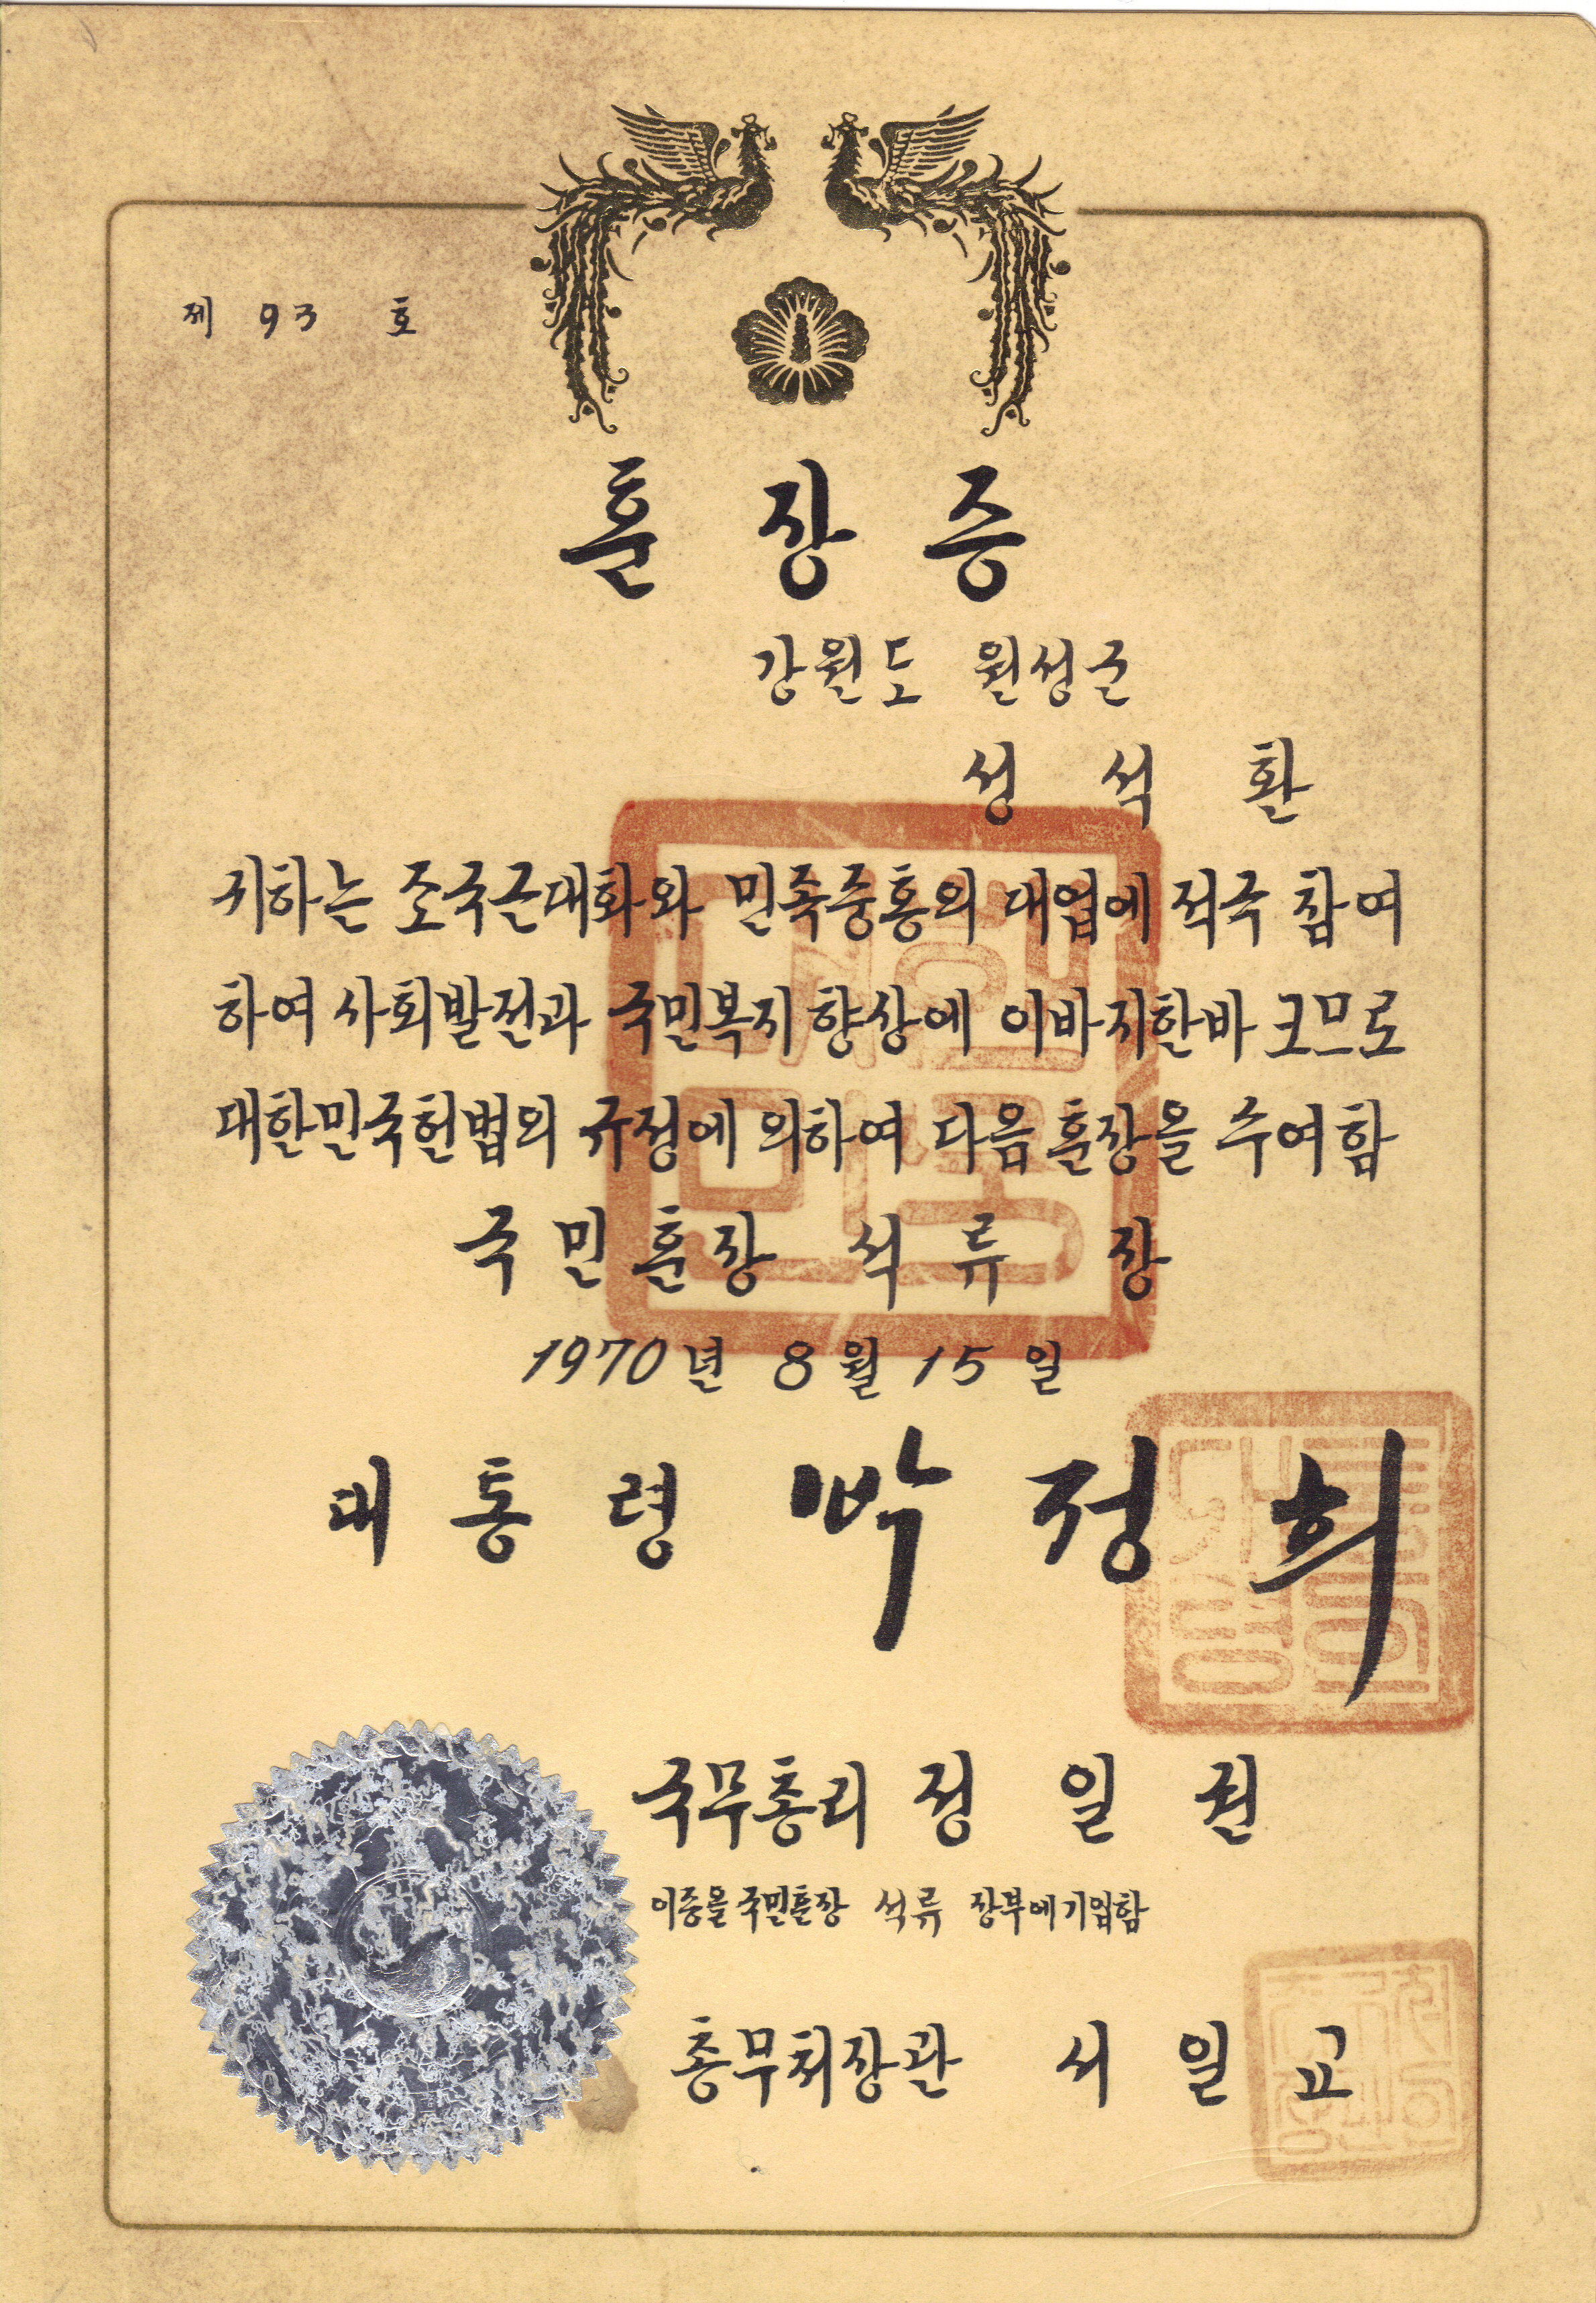 제 93 호
훈 장 증
강원도 원성군
성 석 환
귀하는 조국근대화와 민족중흥의 대업에 적극 참여
하여 사회발전과 국민복지 향상에 이바지한바 크므로
대한민국헌법의 규정에 의하여 다음 훈장을 수여함
국민훈장 석류 장
1970년 8월 15일
대통령 박정희
국무총리 정 일 권
이증을 국민훈장 석류 장부에 기입함
총무처장관 서 일 교